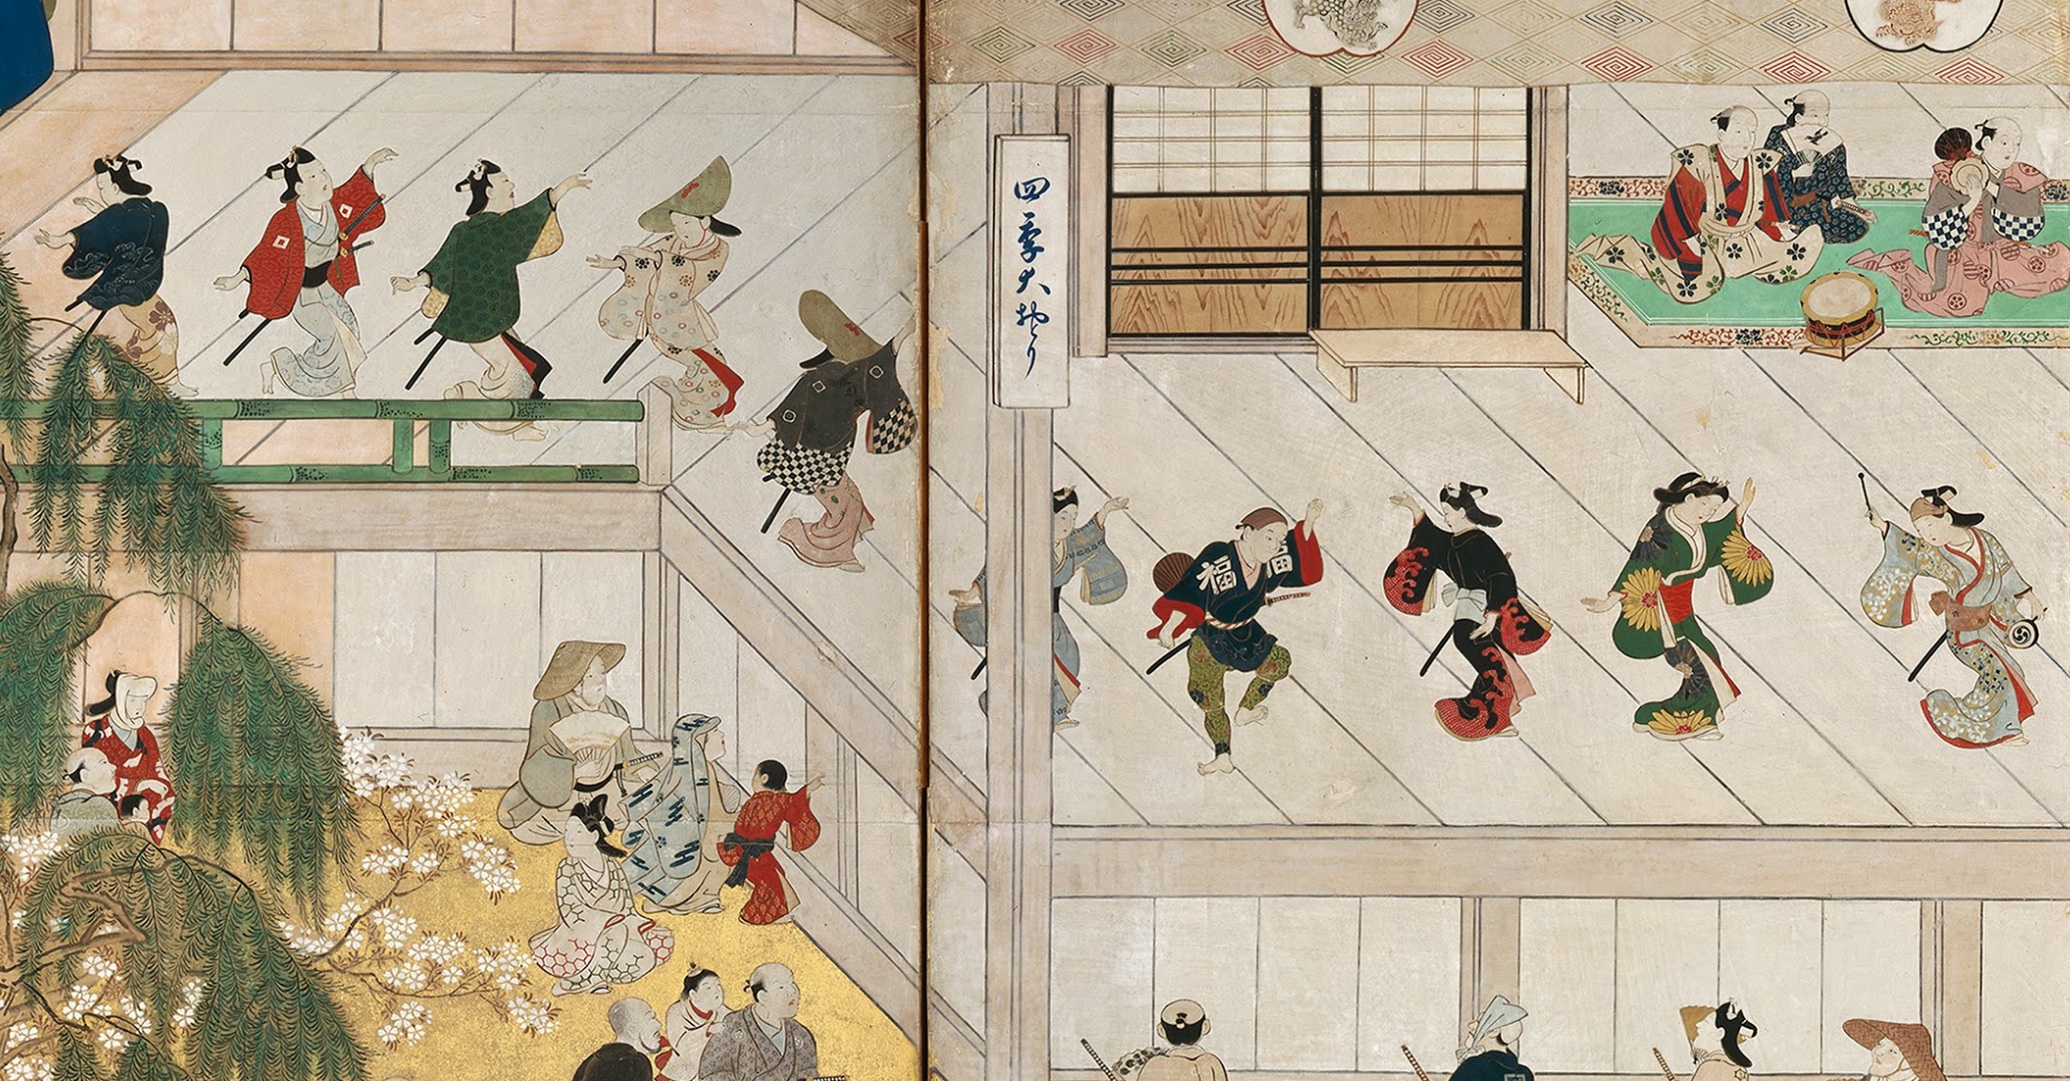 四季大おとり
福
福